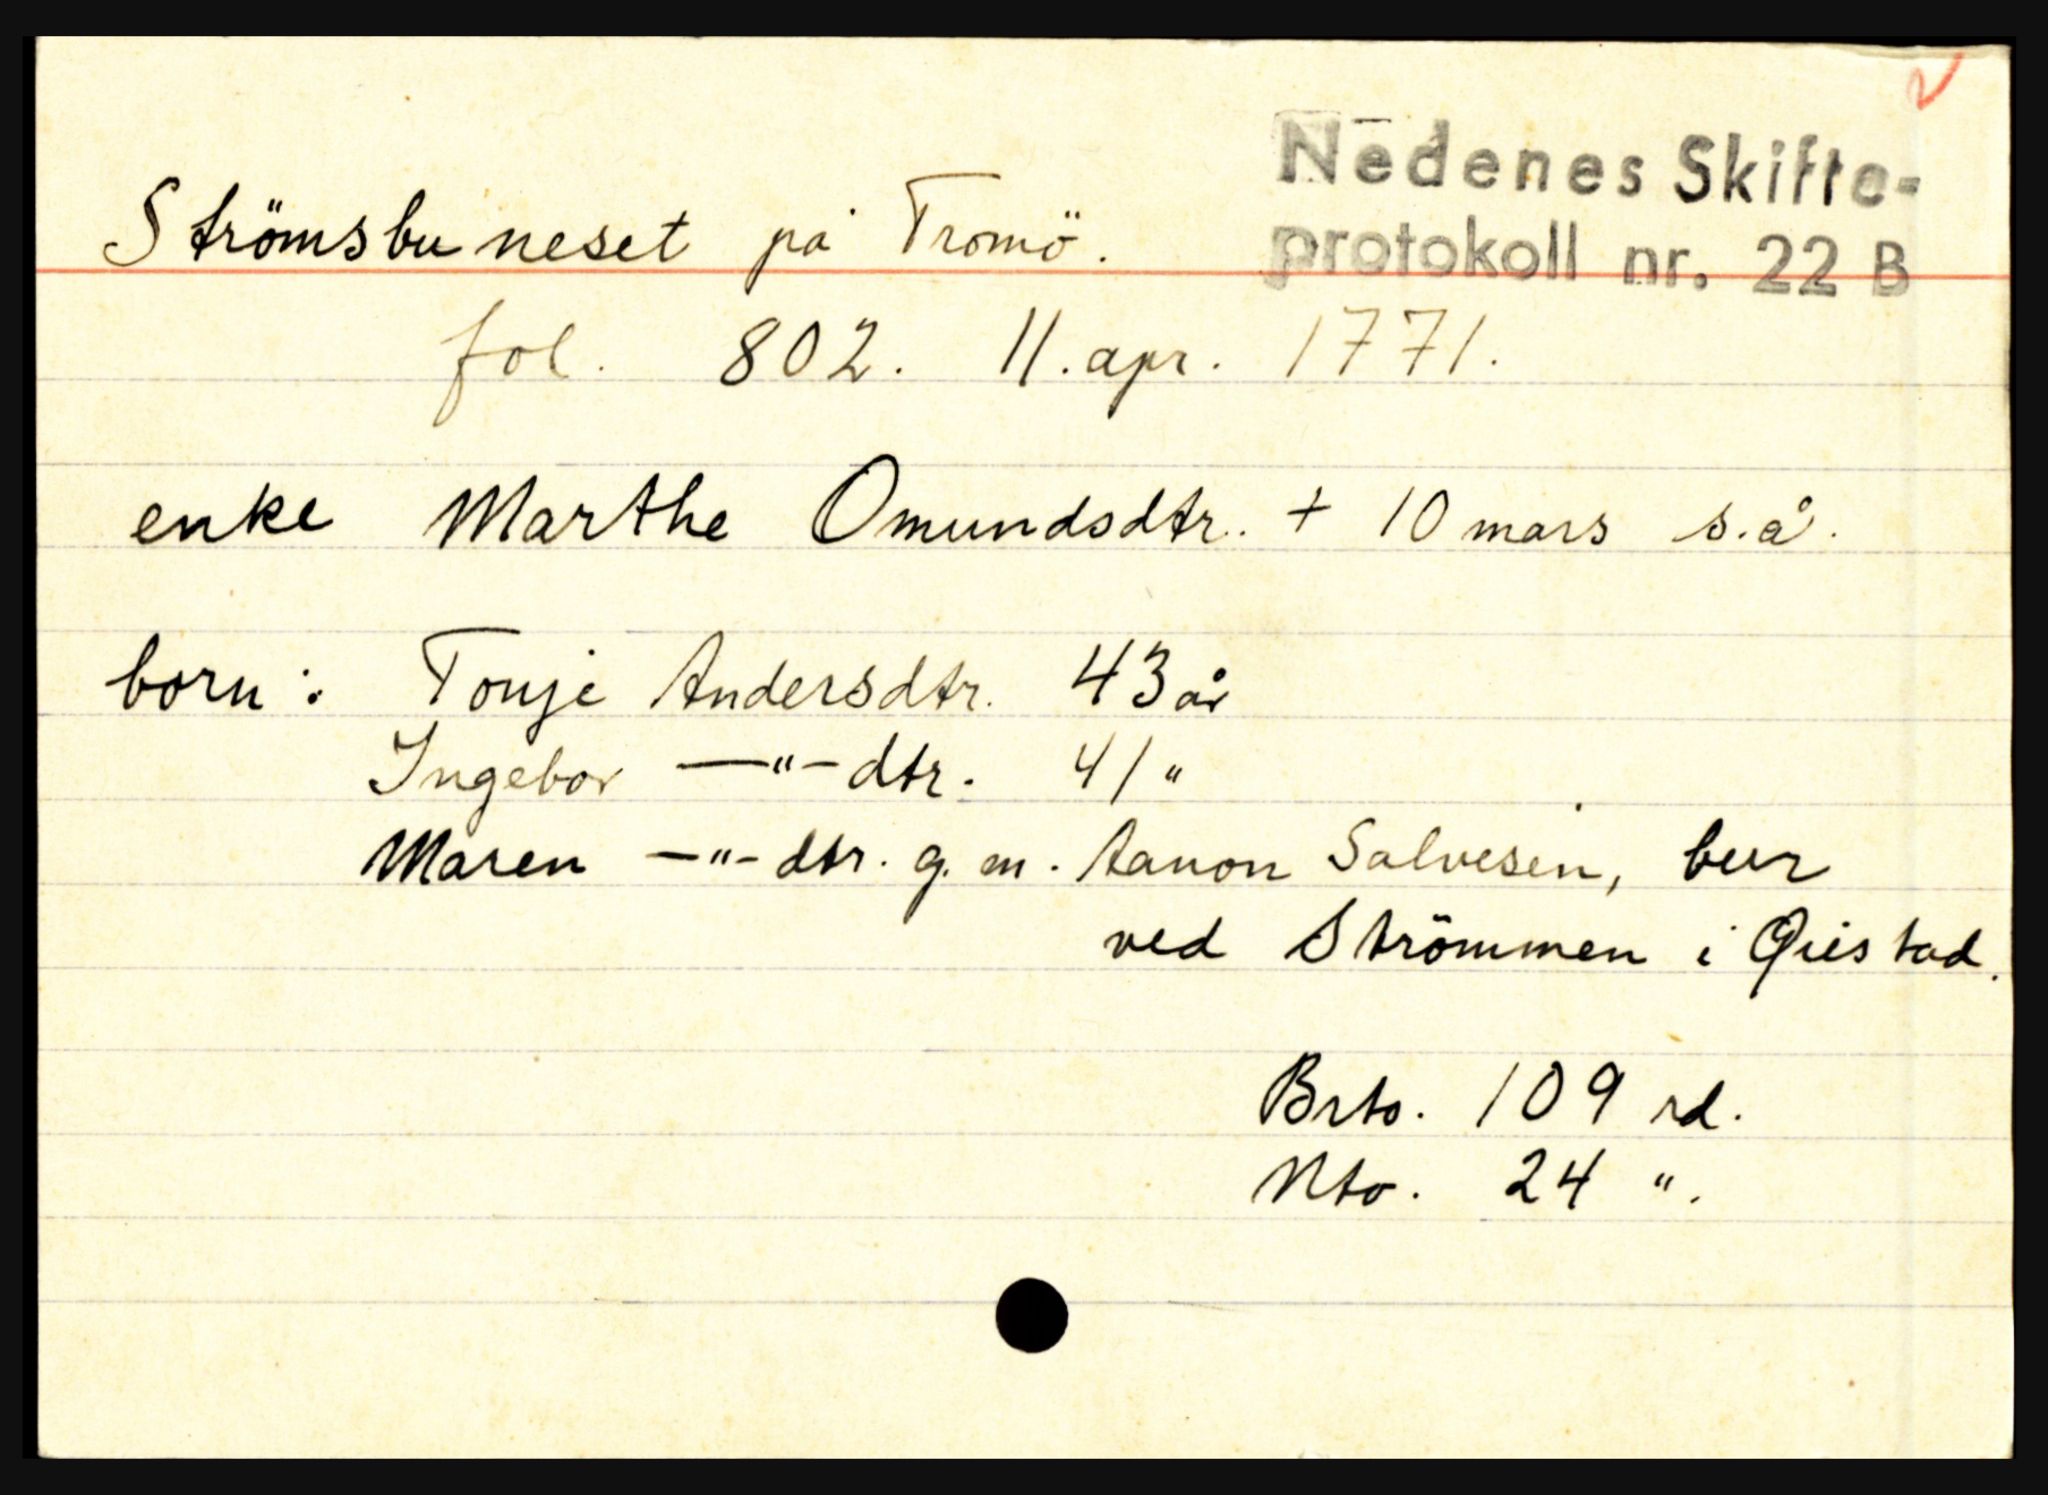 Nedenes Skifte-
protokoll nr. 22 B
Strömsbuneset på Tromö.
fol. 802. 11. apr. 1771.
enke Marthe Omundsdtr. + 10 mars s.å.
born: Tonje Andersdtr. 43 år
Ingebor —"— dtr. 41 "
Maren —"— dtr. g.m. Aanon Salvesen, bur
ved Strömmen i Öiestad.
Brto. 109 rd.
Nto. 24 ".